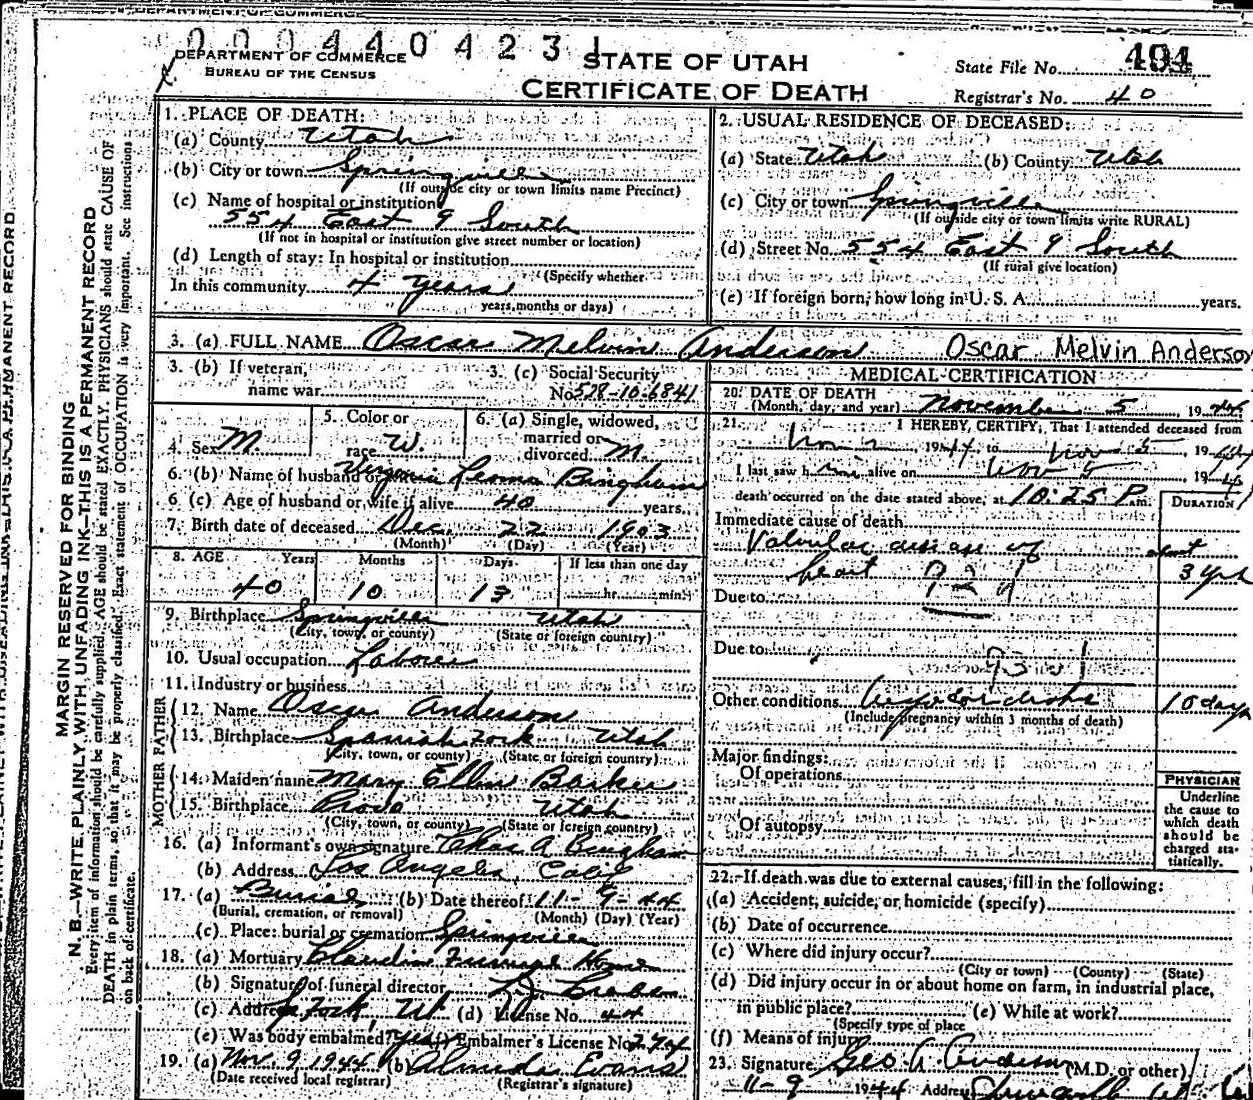 DEPARTMENT OF COMMERCE
000440423 1
DEPARTMENT OF COMMERCE
BUREAU OF THE CENSUS
STATE OF UTAH
CERTIFICATE OF DEATH
State File No. 494
Registrar's No. 40
MARGIN RESERVED FOR BINDING
N. B.—WRITE PLAINLY WITH UNFADING INK—THIS IS A PERMANENT RECORD
Every item of information should be carefully supplied. AGE should be stated EXACTLY. PHYSICIANS should state CAUSE OF
DEATH in plain terms, so that it may be properly classified. Exact statement of OCCUPATION is very important. See instructions
on back of certificate.
1. PLACE OF DEATH:
(a) County Utah
(b) City or town Springville
(If outside city or town limits name Precinct)
(c) Name of hospital or institution
554 East 9 South
(If not in hospital or institution give street number or location)
(d) Length of stay: In hospital or institution
(Specify whether
In this community 4 years
years, months or days)
2. USUAL RESIDENCE OF DECEASED:
(a) State Utah (b) County Utah
(c) City or town Springville
(If outside city or town limits write RURAL)
(d) Street No. 554 East 9 South
(If rural give location)
(e) If foreign born, how long in U. S. A. years.
3. (a) FULL NAME Oscar Melvin Anderson Oscar Melvin Anderson
3. (b) If veteran,
name war
3. (c) Social Security
No. 528-10-6841
4. Sex M.
5. Color or
race W.
6. (a) Single, widowed,
married or
divorced M.
6. (b) Name of husband or Virginia Leona Bingham
6. (c) Age of husband or wife if alive 40 years.
7. Birth date of deceased Dec. 22 1903
(Month) (Day) (Year)
8. AGE Years Months Days If less than one day
40 10 13 hr. min.
9. Birthplace Springville Utah
(City, town, or county) (State or foreign country)
10. Usual occupation Laborer
11. Industry or business
FATHER
12. Name Oscar Anderson
13. Birthplace Spanish Fork Utah
(City, town, or county) (State or foreign country)
MOTHER
14. Maiden name Mary Ellen Barker
15. Birthplace Provo Utah
(City, town, or county) (State or foreign country)
16. (a) Informant's own signature Chas A Bingham
(b) Address Los Angeles, Calif
17. (a) Burial (b) Date thereof 11-9-44
(Burial, cremation, or removal) (Month) (Day) (Year)
(c) Place: burial or cremation Springville
18. (a) Mortuary Claudin Funeral Home
(b) Signature of funeral director
(c) Address S. Fork, Ut (d) License No. 44
(e) Was body embalmed? Yes (f) Embalmer's License No.
19. (a) Nov. 9 1944 (b) Almeda Evans
(Date received local registrar) (Registrar's signature)
MEDICAL CERTIFICATION
20. DATE OF DEATH
(Month, day, and year) November 5 1944
21. I HEREBY CERTIFY, That I attended deceased from
1944, to Nov 5, 1944
I last saw him alive on Nov 5 1944
death occurred on the date stated above, at 10:25 P.m.
DURATION
Immediate cause of death
Valvular disease of about
heart 3 yrs
Due to
Due to
Other conditions 10 days
(Include pregnancy within 3 months of death)
Major findings:
Of operations
Of autopsy
PHYSICIAN
Underline
the cause to
which death
should be
charged sta-
tistically.
22. If death was due to external causes, fill in the following:
(a) Accident, suicide, or homicide (specify)
(b) Date of occurrence
(c) Where did injury occur?
(City or town) (County) (State)
(d) Did injury occur in or about home on farm, in industrial place,
in public place? (e) While at work?
(Specify type of place
(f) Means of injury
23. Signature Geo A Anderson (M.D. or other)
11-9 1944 Address